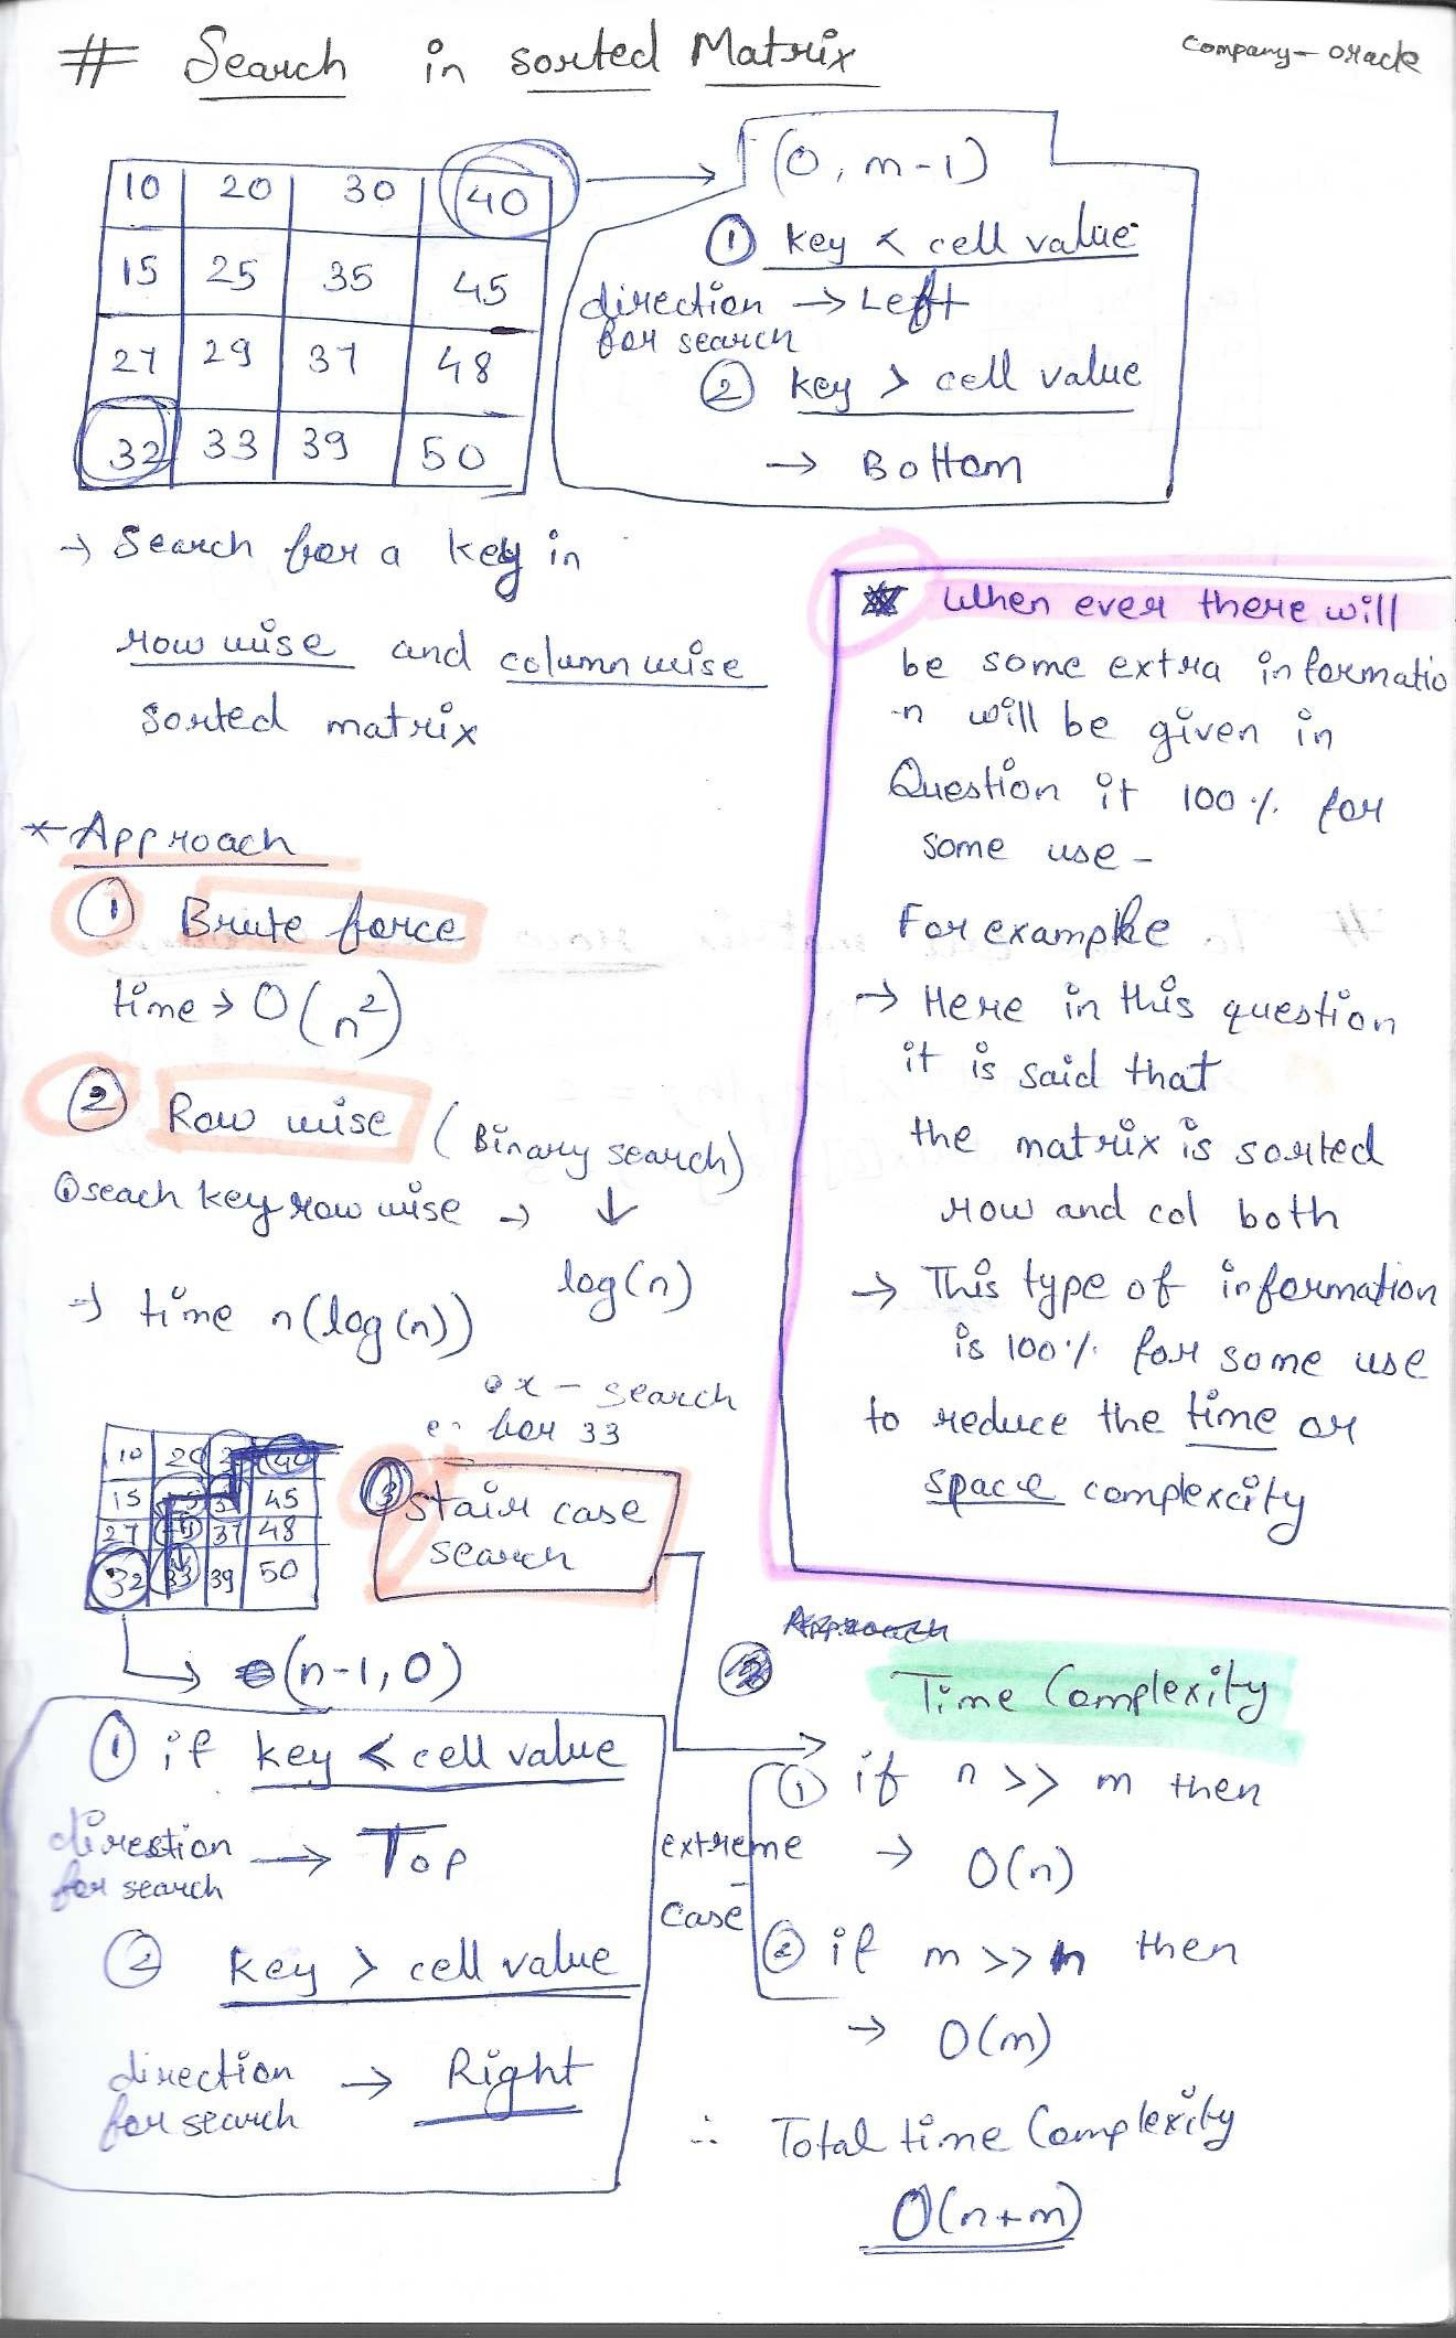 # Search in sorted Matrix
Company - oracle
10 20 30 40
15 25 35 45
27 29 37 48
32 33 39 50
(0, m-1)
① key < cell value
direction → Left
for search
② key > cell value
→ Bottom
→ Search for a key in
row wise and column wise
sorted matrix
* Approach
① Brute force
time → O(n²)
② Row wise (Binary search)
① seach key row wise → ↓
log(n)
→ time n(log(n))
ex - search
for 33
③ Stair case
search
10 20 40
15 45
27 37 48
32 33 39 50
(n-1, 0)
① if key < cell value
direction → Top
for search
② key > cell value
direction → Right
for search
* When ever there will
be some extra informatio
-n will be given in
Question it 100% for
some use -
For example
→ Here in this question
it is said that
the matrix is sorted
row and col both
→ This type of information
is 100% for some use
to reduce the time or
space complexcity
Approach
Time Complexity
extreme
case
① if n >> m then
→ O(n)
② if m >> n then
→ O(m)
∴ Total time Complexity
O(n+m)